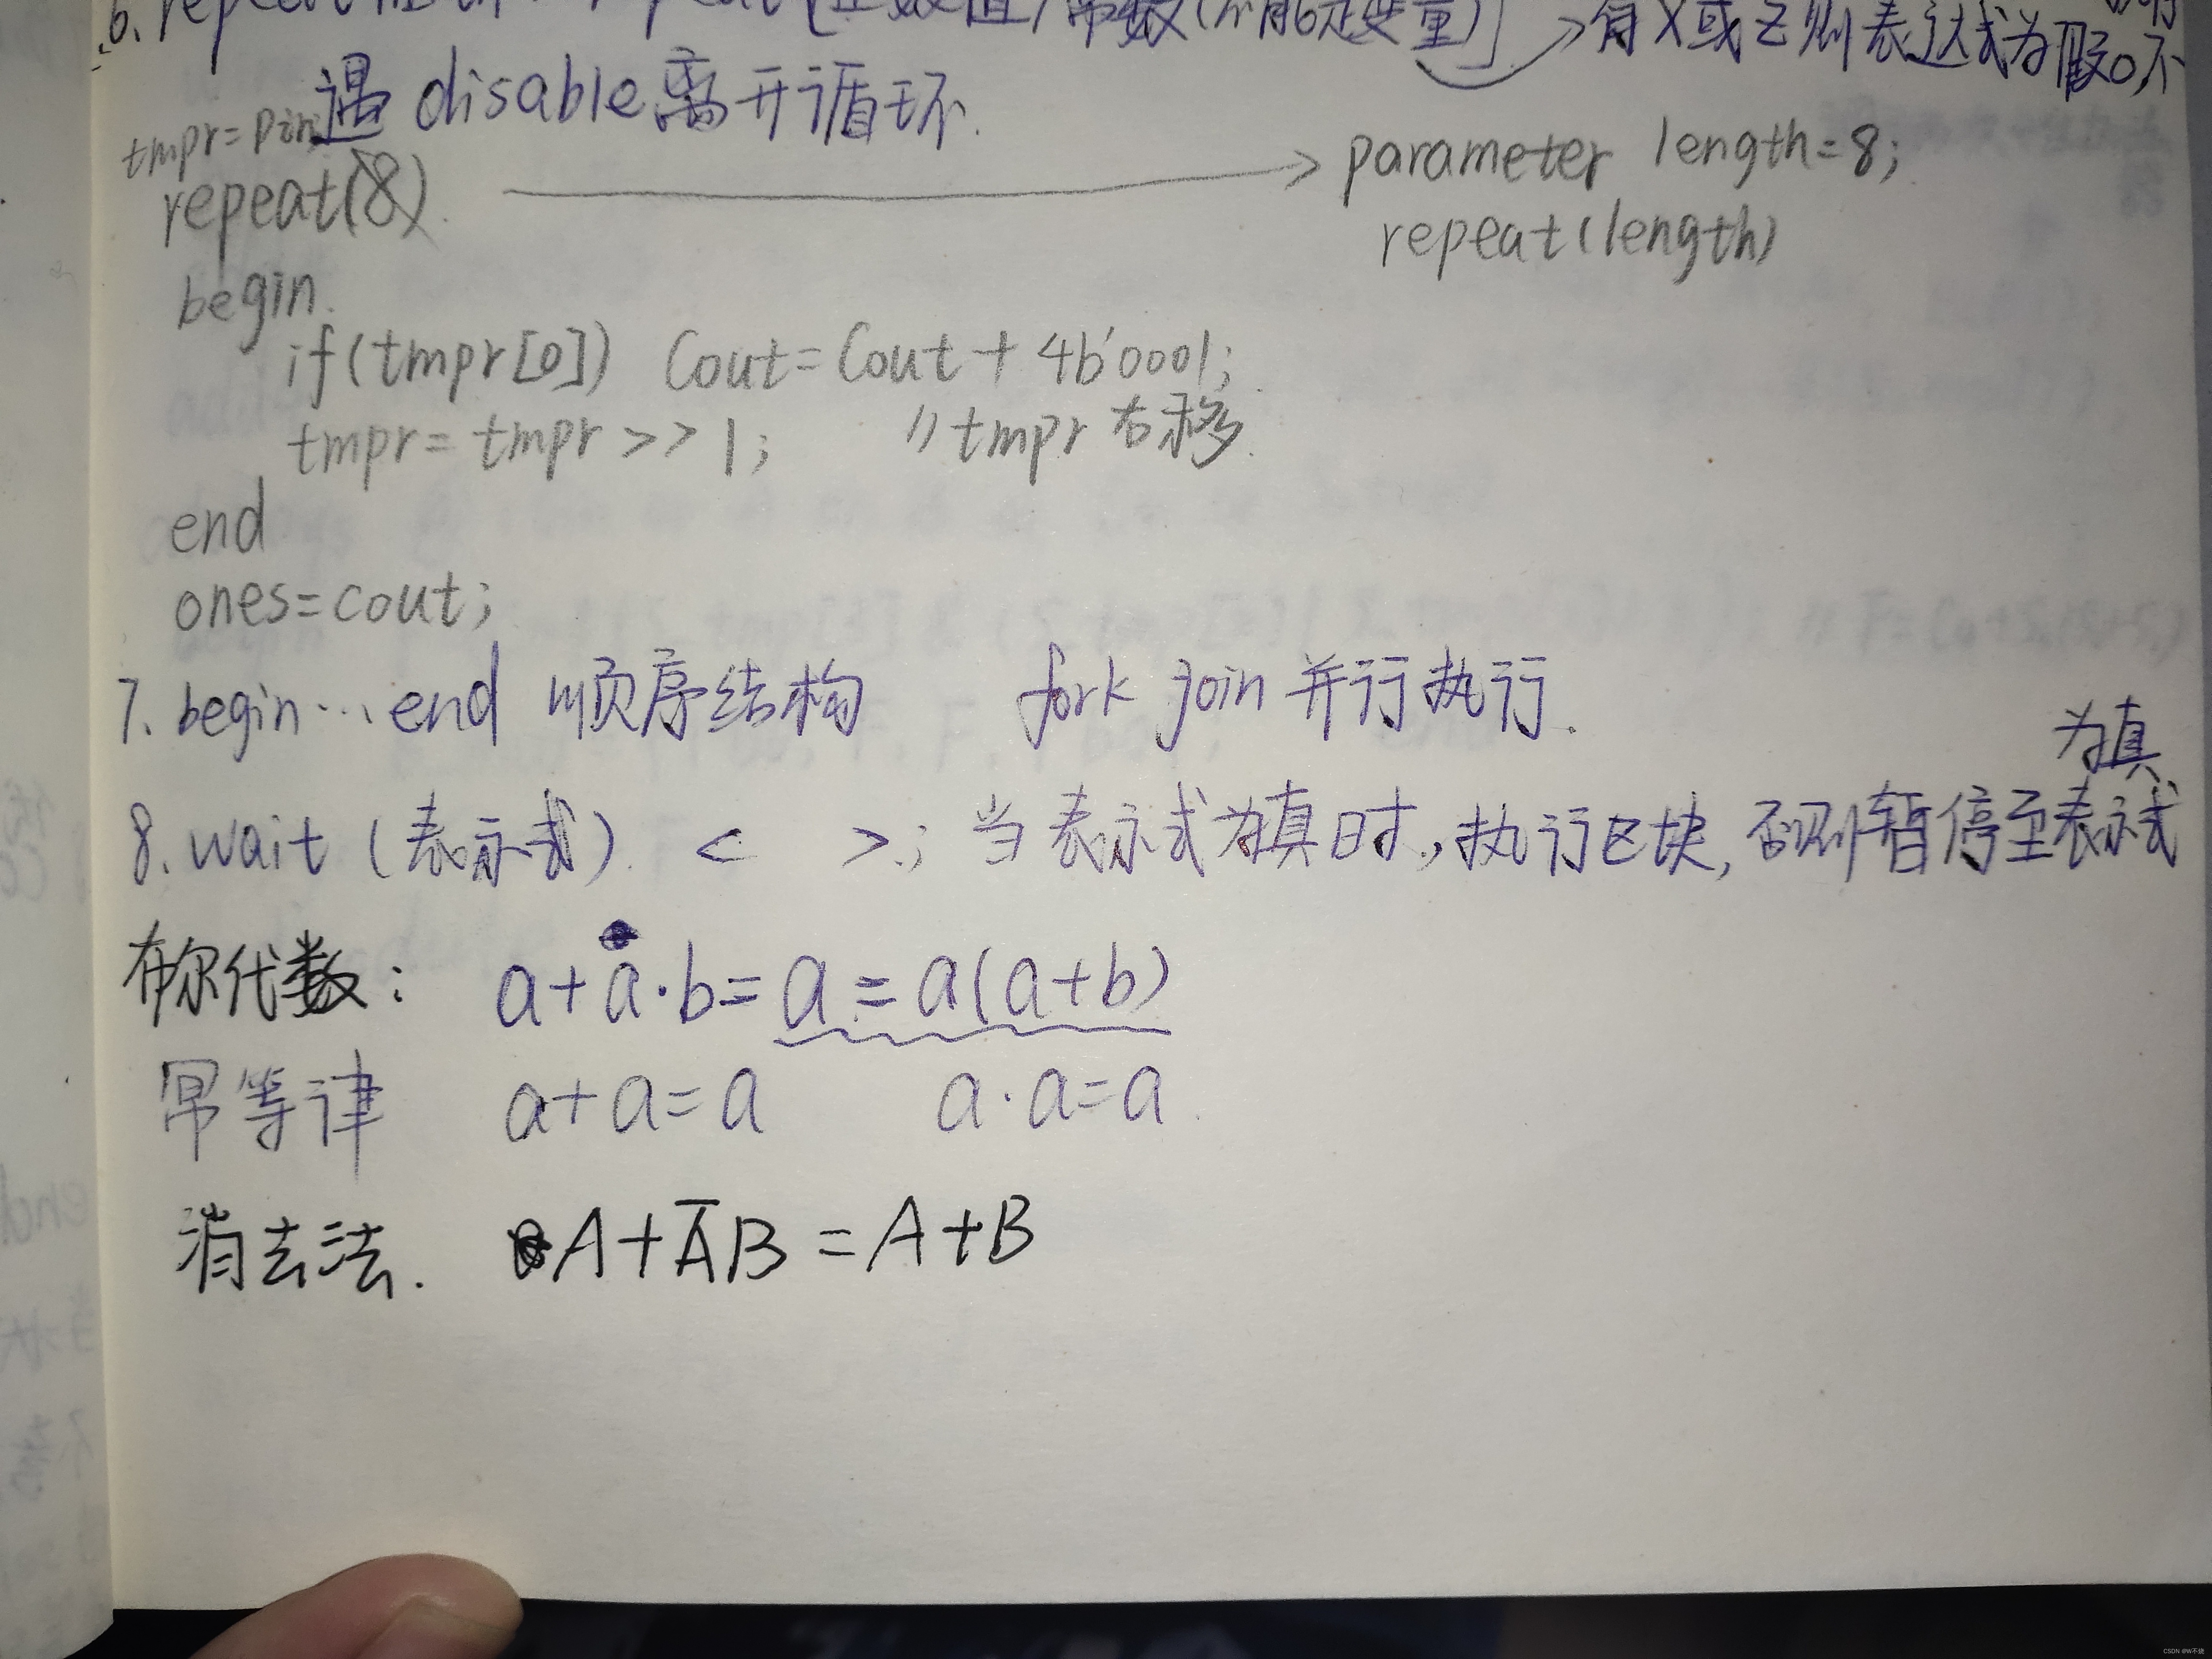 6. repeat
有X或Z则表达式为假0,不
遇disable离开循环.
tmpr=pin
repeat(8)
parameter length=8;
repeat(length)
begin.
if(tmpr[0]) Cout=Cout+4b'0001;
tmpr=tmpr>>1; //tmpr右移.
end
ones=cout;
7. begin…end 顺序结构 fork join 并行执行.
为真
8. wait (表示式) < >; 当表示式为真时,执行区块,否则暂停至表示式
布尔代数: a+a·b=a=a(a+b)
幂等律 a+a=a a·a=a.
消去法. A+A̅B=A+B
CSDN @W不烧